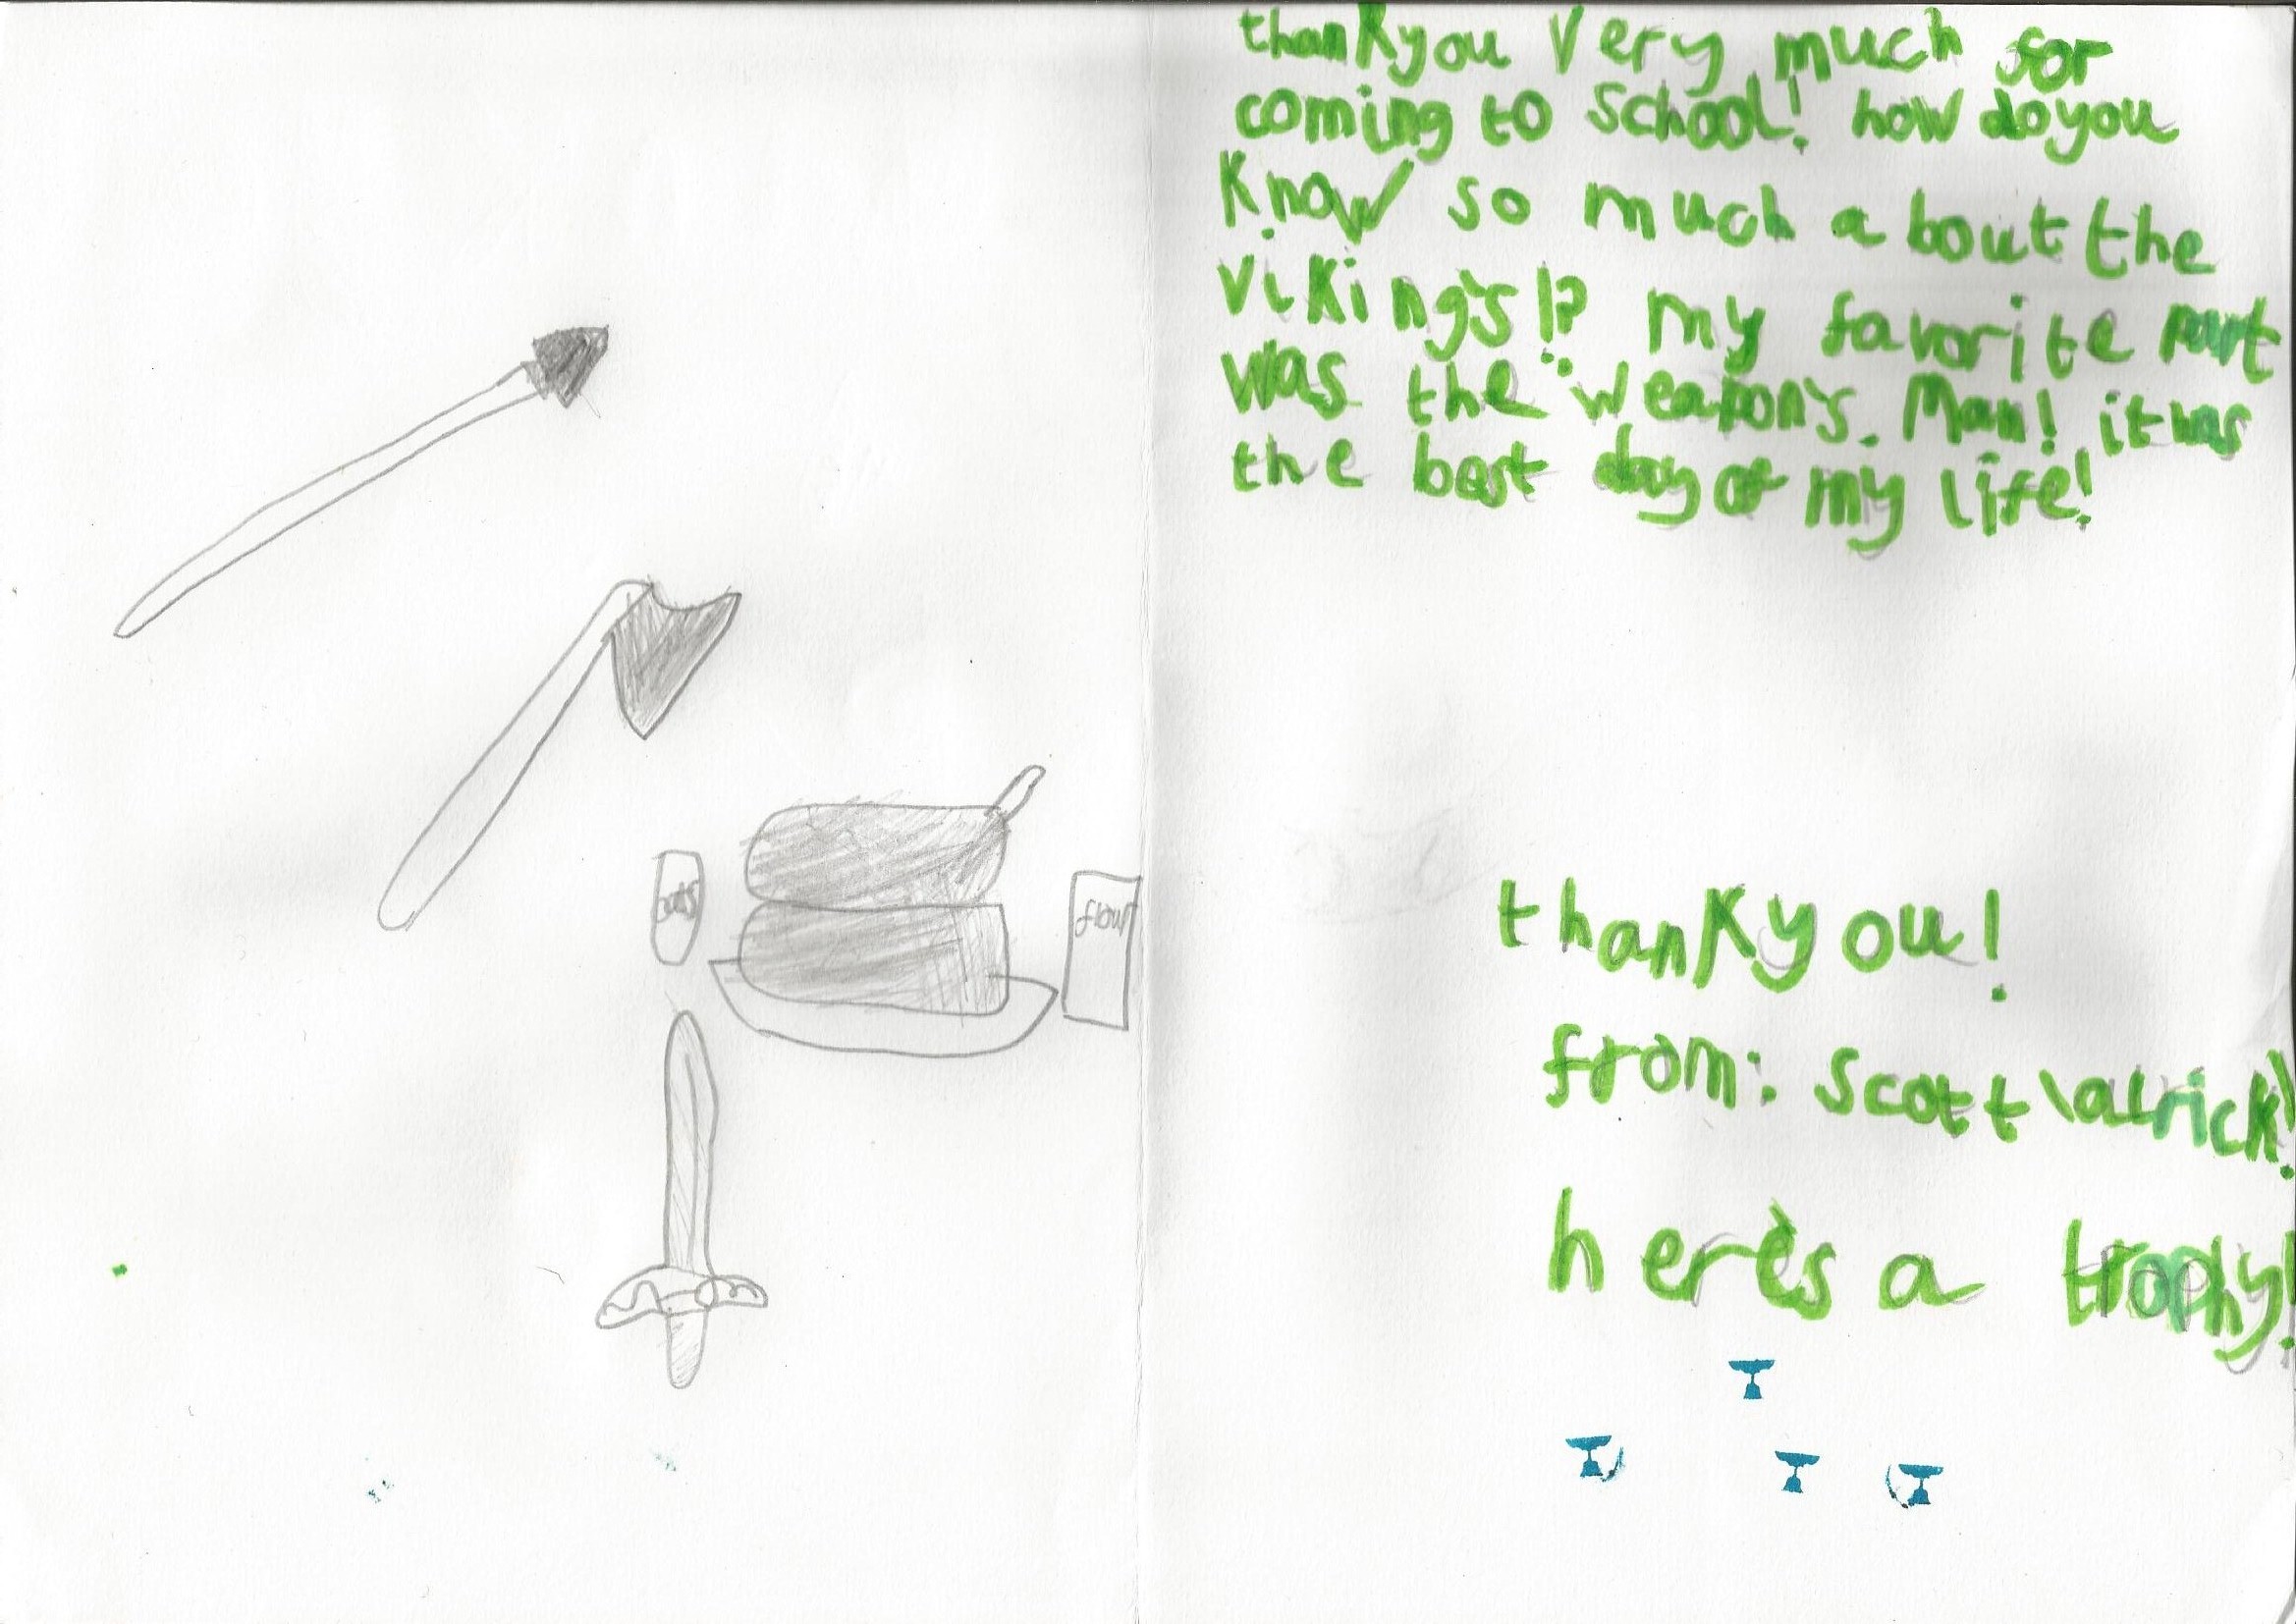 oats
flour
thankyou Very much for
coming to School! how do you
Know so much a bout the
Viking's!? My favorite part
was the weapon's. Man! it was
the best day of my life!
thankyou!
from: Scott \alrick!
here's a trophy!